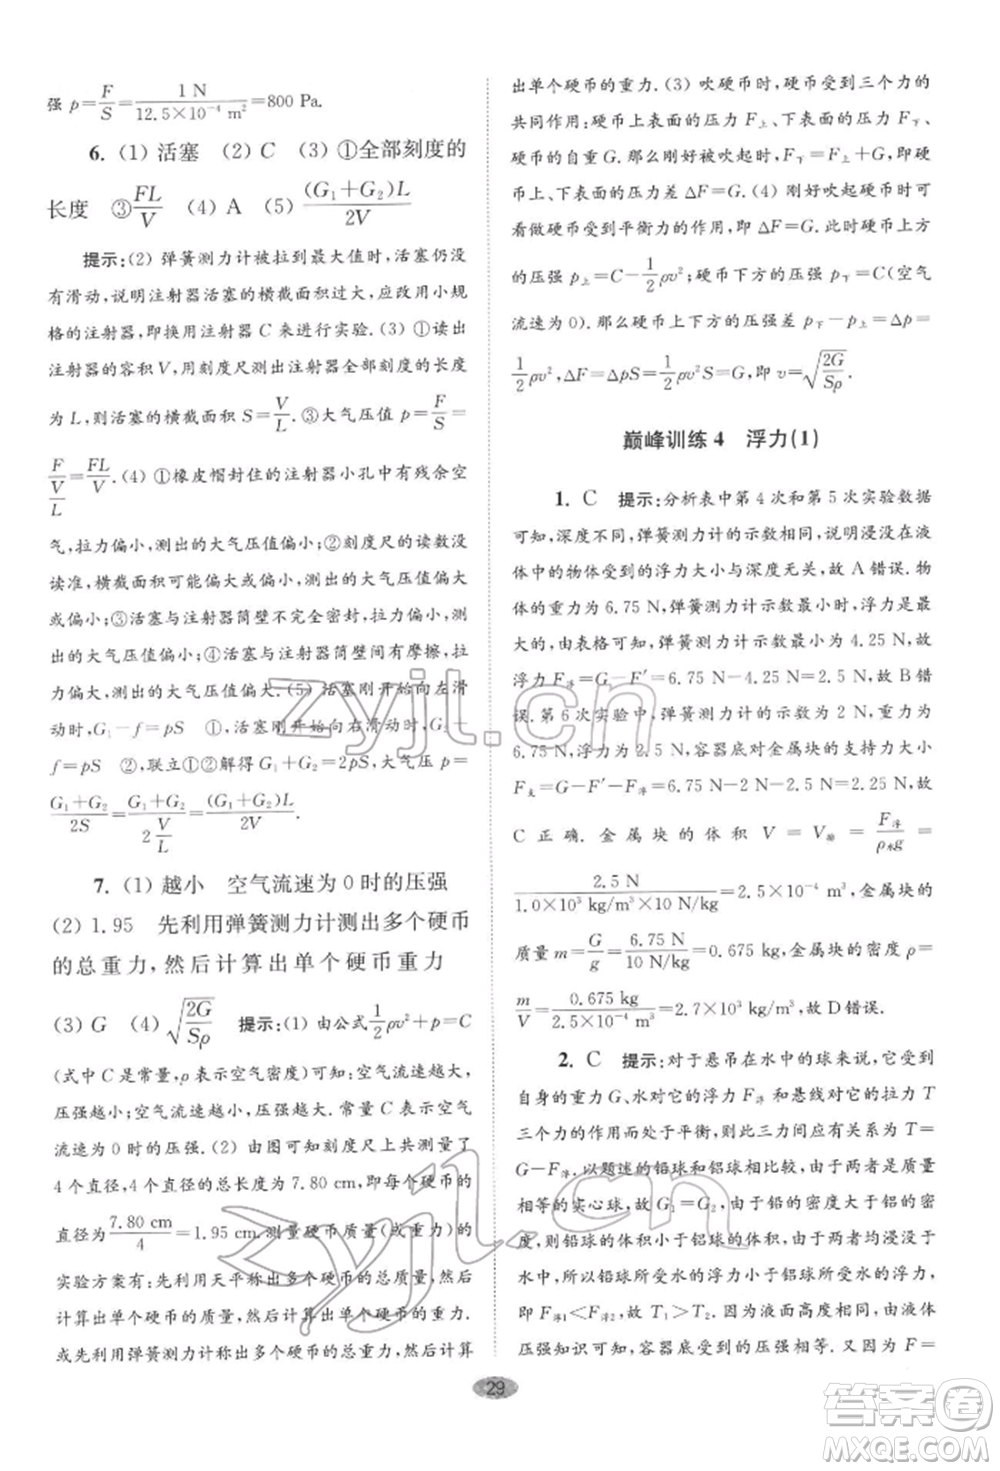 强 p=F/S=1 N/(12.5×10⁻⁴ m²)=800 Pa.
6. (1) 活塞 (2) C (3) ①全部刻度的
长度 ③FL/V (4) A (5) (G₁+G₂)L/2V
提示:(2) 弹簧测力计被拉到最大值时,活塞仍没
有滑动,说明注射器活塞的横截面积过大,应改用小规
格的注射器,即换用注射器 C 来进行实验.(3) ①读出
注射器的容积 V,用刻度尺测出注射器全部刻度的长度
为 L,则活塞的横截面积 S=V/L.③大气压值 p=F/S=
F/(V/L)=FL/V.(4) ①橡皮帽封住的注射器小孔中有残余空
气,拉力偏小,测出的大气压值偏小;②刻度尺的读数没
读准,横截面积可能偏大或偏小,测出的大气压值偏大或
偏小;③活塞与注射器筒壁不完全密封,拉力偏小,测
出的大气压值偏小;④活塞与注射器筒壁间有摩擦,拉
力偏大,测出的大气压值偏大.(5) 活塞刚开始向左滑
动时,G₁−f=pS ①,活塞刚开始向右滑动时,G₂+
f=pS ②,联立①②解得 G₁+G₂=2pS,则 p=
(G₁+G₂)/2S=(G₁+G₂)/(2 V/L)=(G₁+G₂)L/2V.
7. (1) 越小 空气流速为 0 时的压强
(2) 1.95 先利用弹簧测力计测出多个硬币
的总重力,然后计算出单个硬币重力
(3) G (4) √(2G/Sρ) 提示:(1) 由公式 1/2 ρv²+p=C
(式中 C 是常量,ρ 表示空气密度)可知,空气流速越大,
压强越小;空气流速越小,压强越大.常量 C 表示空气
流速为 0 时的压强.(2) 由图可知刻度尺上共测量了
4 个直径,4 个直径的总长度为 7.80 cm,即每个硬币的
直径为 7.80 cm/4=1.95 cm.测量硬币质量(或重力)的
实验方案有:先利用天平称出多个硬币的总质量,然后
计算出单个硬币的质量,最后计算出单个硬币的重力.
或先利用弹簧测力计称出多个硬币的总重力,然后计算
出单个硬币的重力.(3) 吹硬币时,硬币受到三个力的
共同作用:硬币上表面的压力 F上、下表面的压力 F下、
硬币的自重 G.那么刚好被吹起时,F下=F上+G,即硬
币上、下表面的压力差 ΔF=G.(4) 刚好吹起硬币时可
看做硬币受到平衡力的作用,即 ΔF=G.所以,硬币上方
的压强 p上=C−1/2 ρv²;硬币下方的压强 p下=C(空气
流速为 0).那么硬币上下方的压强差 p下−p上=Δp=
1/2 ρv²,ΔF=ΔpS=1/2 ρv²S=G,即 v=√(2G/Sρ).
巅峰训练 4 浮力(1)
1. C 提示:分析表中第 4 次和第 5 次实验数据
可知,深度不同,弹簧测力计的示数相同,说明浸没在液
体中的物体受到的浮力大小与深度无关,故 A 错误.物
体的重力为 6.75 N,弹簧测力计示数最小时,浮力是最
大的,由表格可知,弹簧测力计示数最小为 4.25 N,故
浮力 F浮=G−F′=6.75 N−4.25 N=2.5 N,故 B 错
误.第 6 次实验中,弹簧测力计的示数为 2 N,重力为
6.75 N,浮力为 2.5 N,容器底对金属块的支持力大小
为 F支=G−F′−F浮=6.75 N−2 N−2.5 N=2.25 N,故
C 正确. 金属块的体积 V=V排=F浮/ρ水g=
2.5 N/(1.0×10³ kg/m³×10 N/kg)=2.5×10⁻⁴ m³,金属块的
质量 m=G/g=6.75 N/(10 N/kg)=0.675 kg,金属块的密度 ρ=
m/V=0.675 kg/(2.5×10⁻⁴ m³)=2.7×10³ kg/m³,故 D 错误.
2. C 提示:对于悬吊在水中的球来说,它受到
自身的重力 G、水对它的浮力 F浮 和悬线对它的拉力 T
三个力的作用而处于平衡,则此三力间应有关系为 T=
G−F浮.以题述的铅球和铝球相比较,由于两者是质量
相等的实心球,故 G₁=G₂.由于铅的密度大于铝的密
度,则铅球的体积小于铝球的体积.由于两者均浸没于
水中,所以铅球所受水的浮力小于铝球所受水的浮力,
即 F浮1<F浮2,故 T₁>T₂.因为液面高度相同,由液体
压强知识可知此时两容器底部所受水的压强相等.又因为 F=
29
zyjl.cn
zyjl.cn
答案圈
MXQE.COM